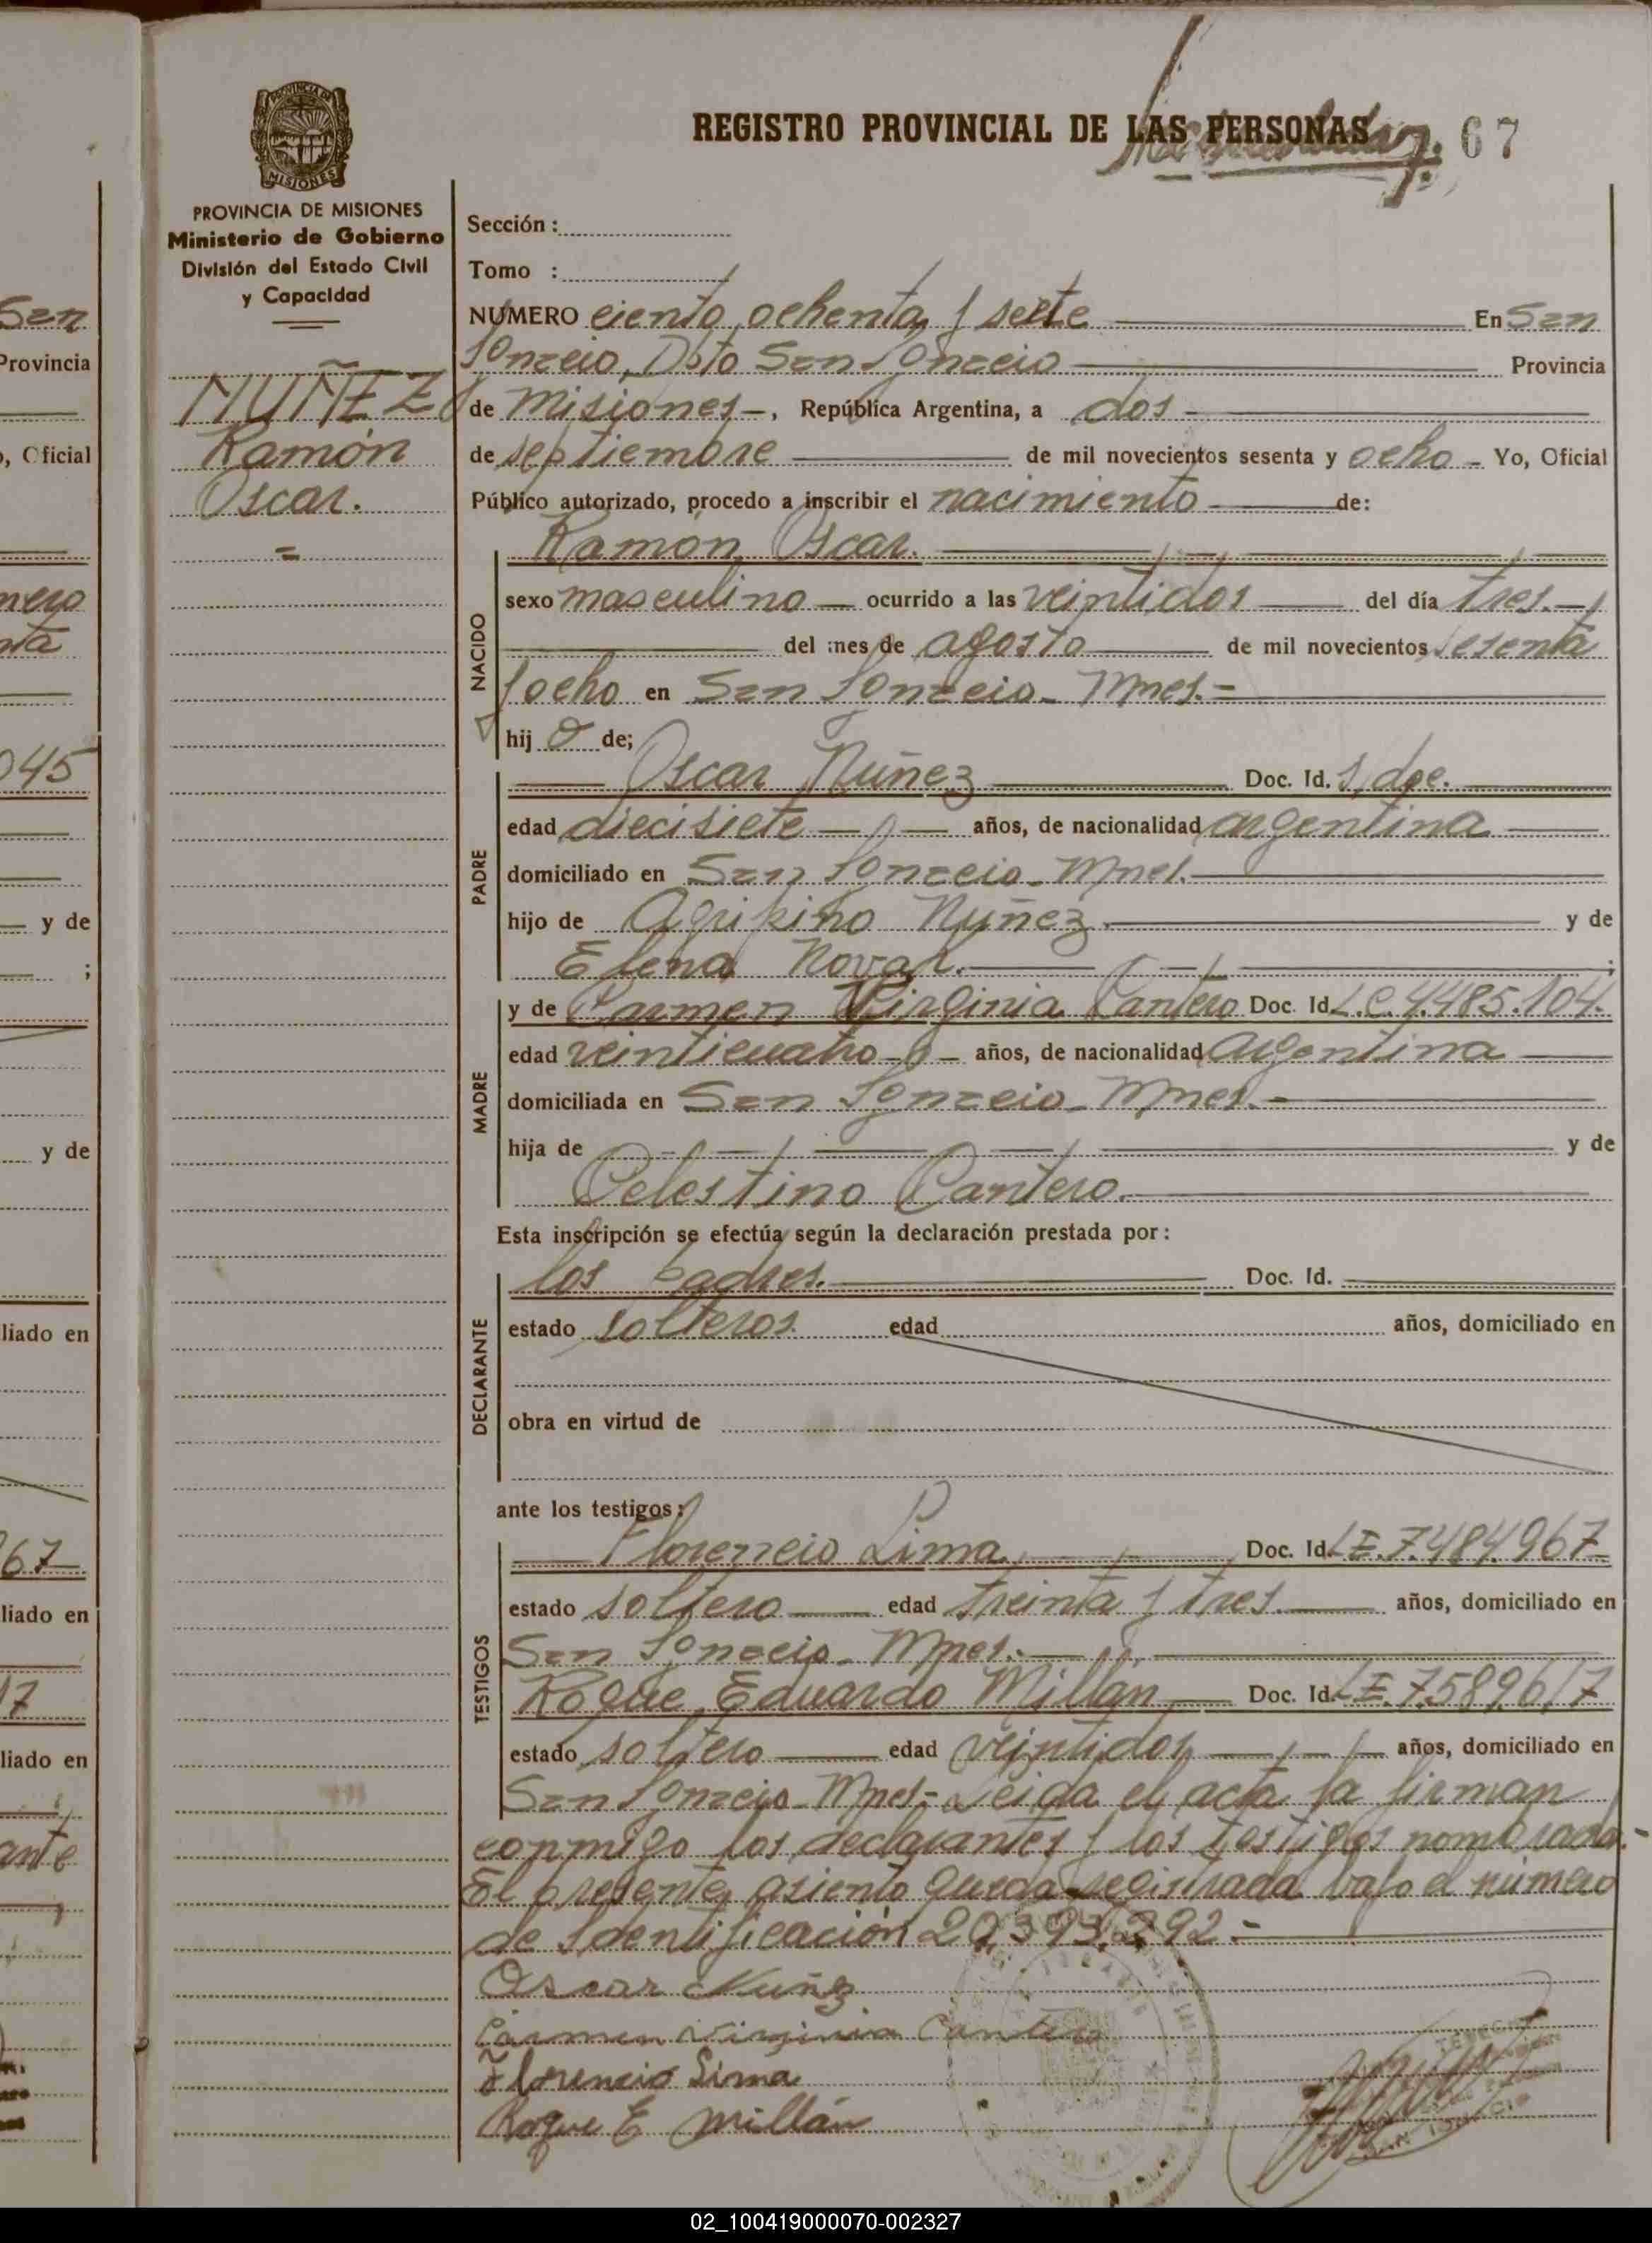 REGISTRO PROVINCIAL DE LAS PERSONAS
67
PROVINCIA DE MISIONES
Ministerio de Gobierno
División del Estado Civil
y Capacidad
NUÑEZ
Ramón
Oscar.
=
Sección :
Tomo :
NUMERO ciento ochenta y siete En San
Ignacio, Dpto San Ignacio Provincia
de Misiones -, República Argentina, a dos
de septiembre de mil novecientos sesenta y ocho - Yo, Oficial
Público autorizado, procedo a inscribir el nacimiento de:
NACIDO
Ramón Oscar.
sexo masculino ocurrido a las veintidos del día tres.
del mes de agosto de mil novecientos sesenta
y ocho en San Ignacio - Mnes. =
hij o de;
PADRE
Oscar Nuñez Doc. Id. s/doc.
edad diecisiete años, de nacionalidad argentina
domiciliado en San Ignacio - Mnes.
hijo de Agripino Nuñez. y de
Elena ;
MADRE
y de Carmen Virginia Cantero Doc. Id. L.C. 4.485.104.
edad veinticuatro años, de nacionalidad argentina
domiciliada en San Ignacio - Mnes. -
hija de y de
Celestino Cantero.
Esta inscripción se efectúa según la declaración prestada por :
DECLARANTE
los padres. Doc. Id.
estado solteros. edad años, domiciliado en
obra en virtud de
ante los testigos :
TESTIGOS
Florencio Lima, Doc. Id. L.E. 7.484.967.
estado soltero edad treinta y tres. años, domiciliado en
San Ignacio - Mnes. -
Roque Eduardo Millán Doc. Id. L.E. 7.589.617
estado soltero edad veintidos años, domiciliado en
San Ignacio - Mnes - Leida el acta la firman
conmigo los declarantes y los testigos nombrados. -
El presente asiento queda registrada bajo el número
de Identificación 20.393.292 -
Oscar Nuñez
Carmen Virginia Cantero
Florencio Lima
Roque E Millán
Sen
Provincia
, Oficial
045
y de
;
y de
liado en
67
liado en
17
liado en
02_100419000070-002327